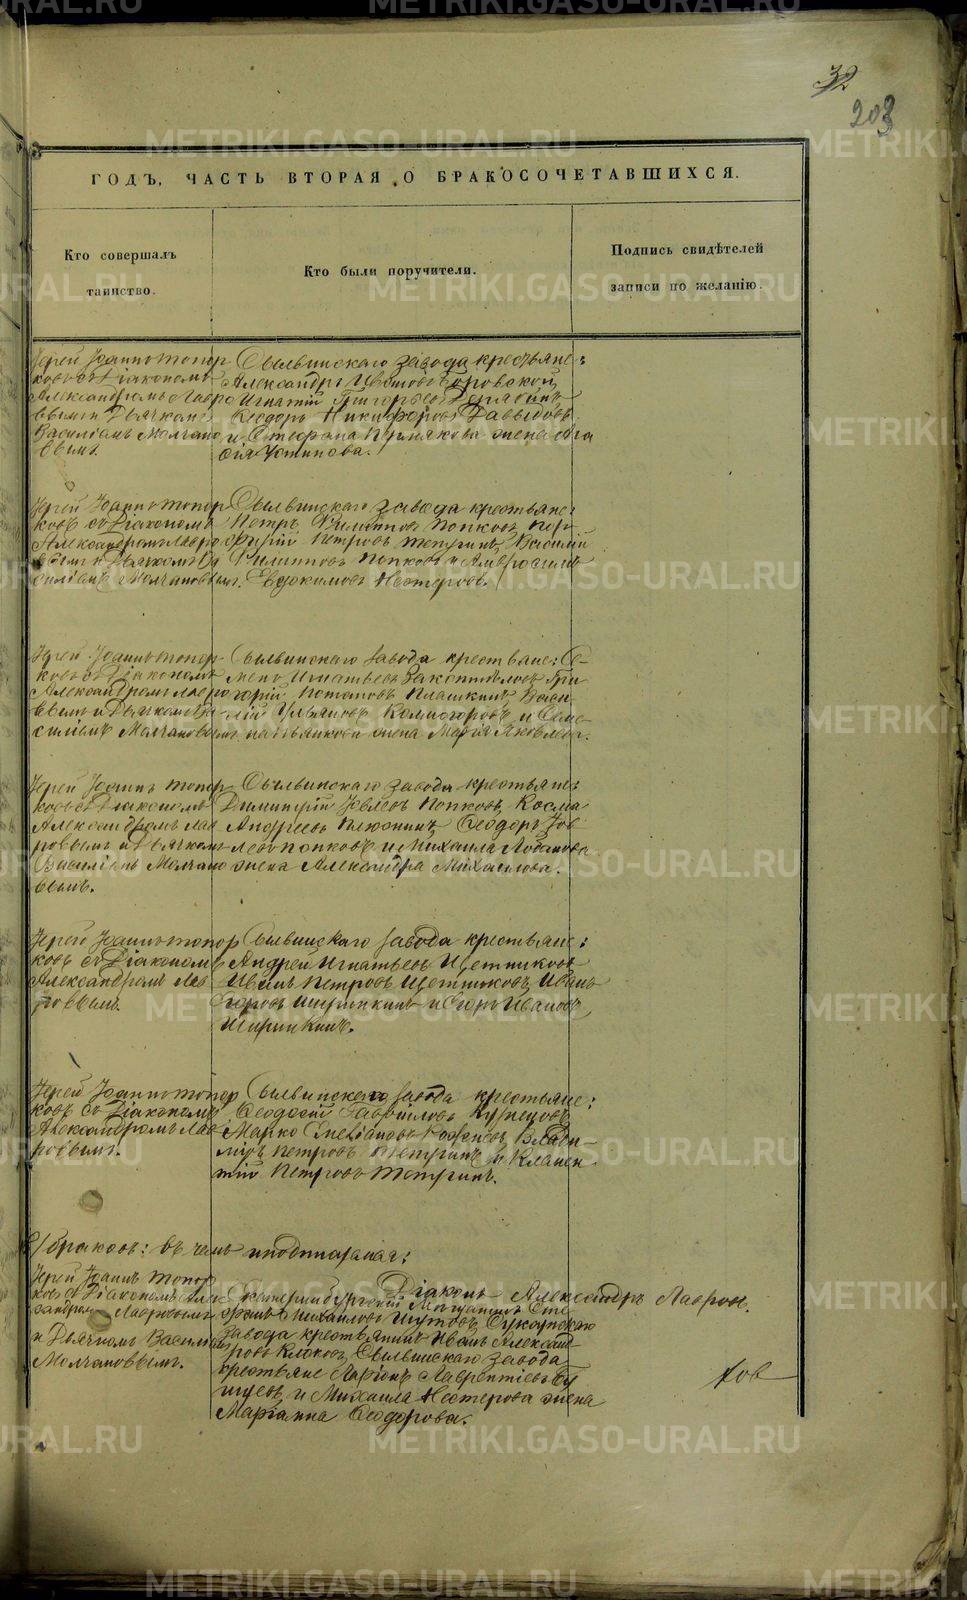 32
203
ГОДЪ, ЧАСТЬ ВТОРАЯ О БРАКОСОЧЕТАВШИХСЯ.
Кто совершалъ
таинство.
Кто были поручители.
Подпись свидѣтелей
записи по желанію.
Іерей Іоаннъ Топор
ковъ съ Діакономъ
Александромъ Лавро
вымъ и Дьячкомъ
Василіемъ Молчано
вымъ.
Сылвинскаго завода крестьяне:
Александръ Ивановъ Боровской,
Игнатій Григорьевъ
Ѳеодоръ Никифоровъ Давыдовъ
и Стефана Пермякова жена Ага
фія Устинова.
Іерей Іоаннъ Топор
ковъ съ Діакономъ
Александромъ Лавро
вымъ и Дьячкомъ Ва
силіемъ Молчановымъ.
Сылвинскаго завода крестьяне:
Петръ Филиповъ Попковъ, Пор
фирій Петровъ Тетугинъ, Василій
Филиповъ Попковъ и Амвросій
Евдокимовъ Нестеровъ.
Іерей Іоаннъ Топор
ковъ съ Діакономъ
Александромъ Лавро
вымъ и Дьячкомъ Ва
силіемъ Молчановымъ
Сылвинскаго завода крестьяне: Се
менъ Игнатьевъ Гри
горій Потаповъ Плашкинъ Васи
лій Ульяновъ Комногоровъ и
жена Марія Яковлева.
Іерей Іоаннъ Топор
ковъ съ Діакономъ
Александромъ Лав
ровымъ и Дьячкомъ
Василіемъ Молчано
вымъ.
Сылвинскаго завода крестьяне:
Димитрій Іовлевъ Попковъ, Косма
Андреевъ Плюснинъ, Ѳеодоръ Іов
левъ Попковъ и Михаила Лобанова
жена Александра Михаилова.
Іерей Іоаннъ Топор
ковъ съ Діакономъ
Александромъ Лав
ровымъ.
Сылвинскаго завода крестьяне:
Андрей Игнатьевъ Щетниковъ
Иванъ Петровъ Щетниковъ, Иванъ
Егоровъ Ширинкинъ и Егоръ Ивановъ
Ширинкинъ.
Іерей Іоаннъ Топор
ковъ съ Діакономъ
Александромъ Лав
ровымъ.
Сылвинскаго завода крестьяне:
Ѳеодосій Гавриловъ Кузнецовъ
Марко Влади
миръ Петровъ Тетугинъ и Климен
тій Петровъ Тетугинъ.
браковъ: въ чемъ и подписуемся:
Діаконъ Александръ Лавровъ.
Іерей Іоаннъ Топор
ковъ съ Діакономъ Алек
сандромъ Лавровымъ
и Дьячкомъ Василіемъ
Молчановымъ.
Екатеринбургскій Мещанинъ Сте
фанъ Михаиловъ Шутовъ,
завода крестьянинъ Иванъ Александ
ровъ Клюковъ, Сылвинскаго завода
крестьяне Ларіонъ Лаврентіевъ
и Михаила Нестерова жена
Маріамна Ѳеодорова.
ковъ
METRIKI.GASO-URAL.RU